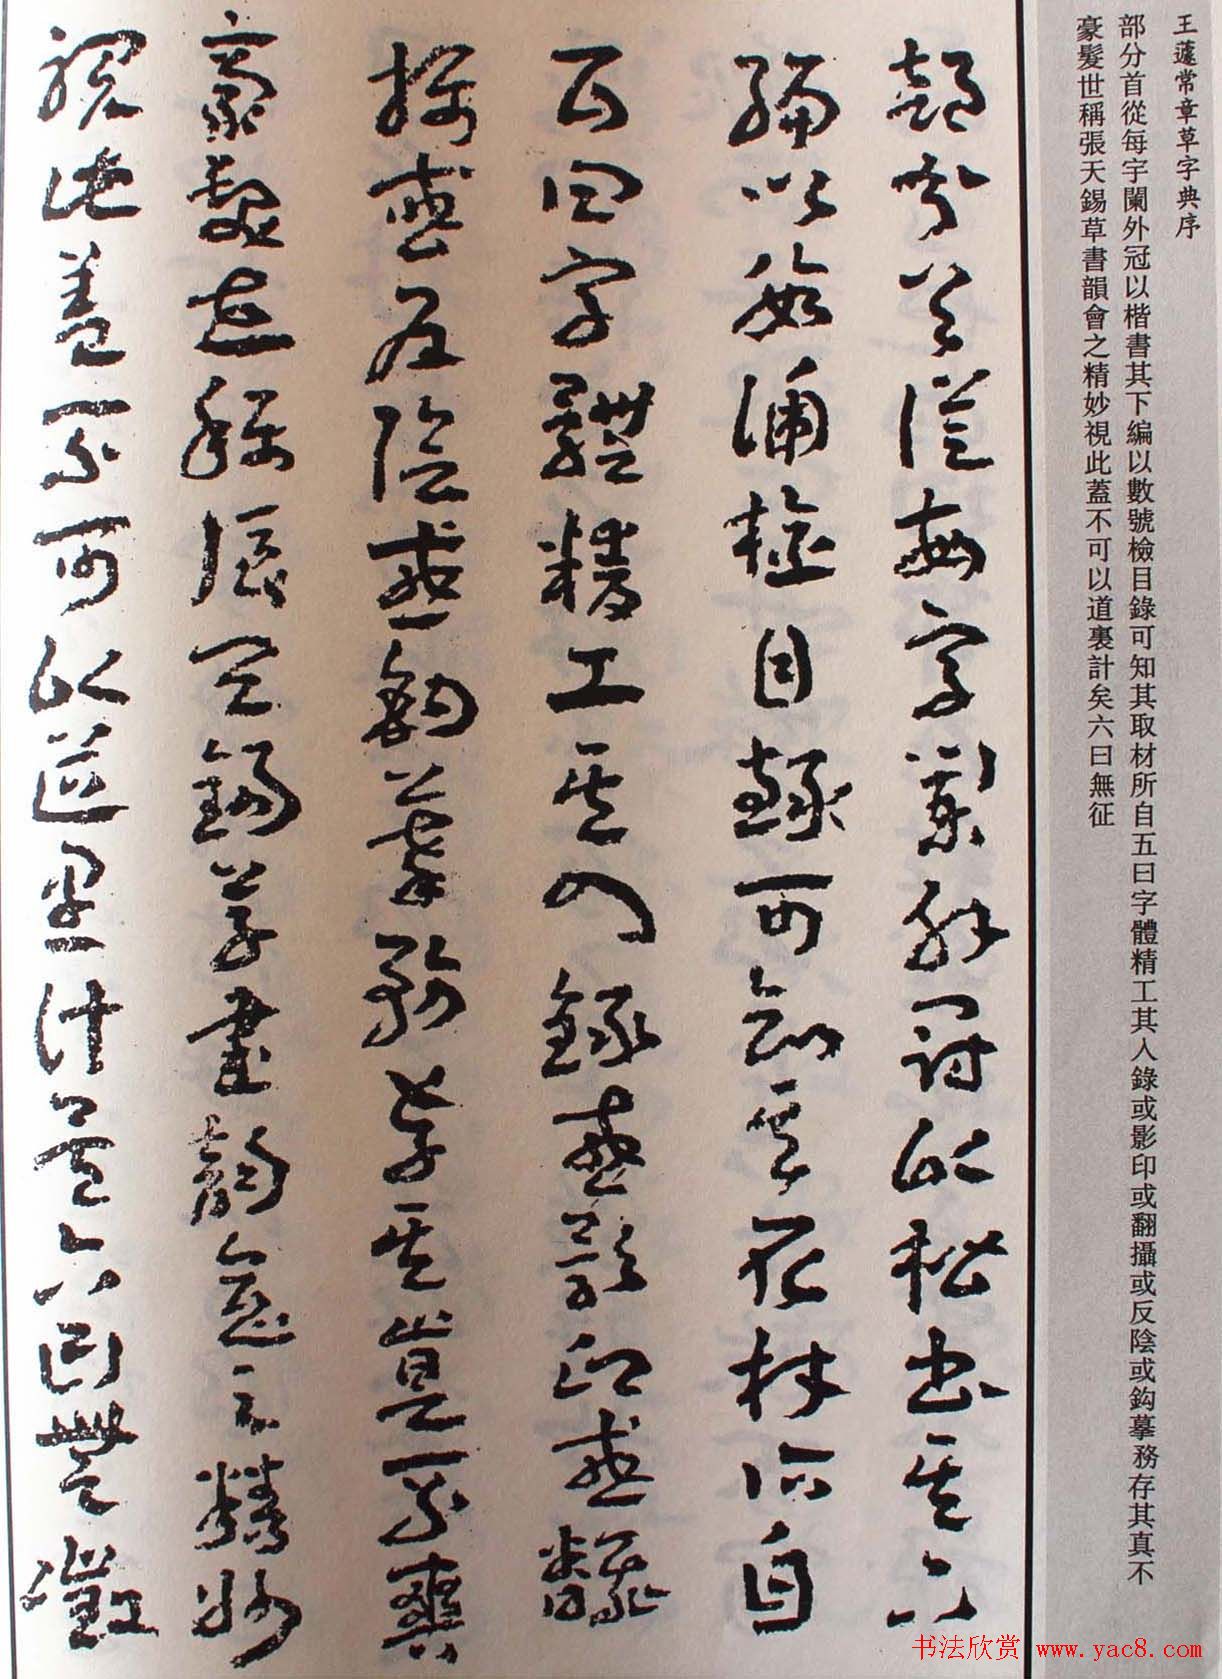 王蘧常章草字典序
部分首從每字闌外冠以楷書其下編以數號檢目錄可知其取材所自五曰字體精工其入錄或影印或翻攝或反陰或鈎摹務存其真不
豪髮世稱張天錫草書韻會之精妙視此蓋不可以道裏計矣六曰無征
部分首從每字闌外冠以楷書其下
編以數號檢目錄可知其取材所自
五曰字體精工其入錄或影印或翻
攝或反陰或鈎摹務存其真不爽
豪髮世稱張天錫草書韻會之精妙
視此蓋不可以道里計矣六曰無徵
书法欣赏 www.yac8.com